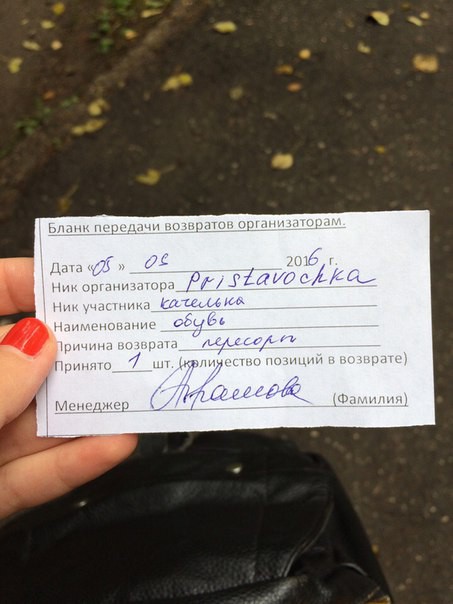 Бланк передачи возвратов организаторам.
Дата «05» 09 2016 г.
Ник организатора Pristavochka
Ник участника качелька
Наименование обувь
Причина возврата пересорт
Принято 1 шт. (количество позиций в возврате)
Менеджер (Фамилия)